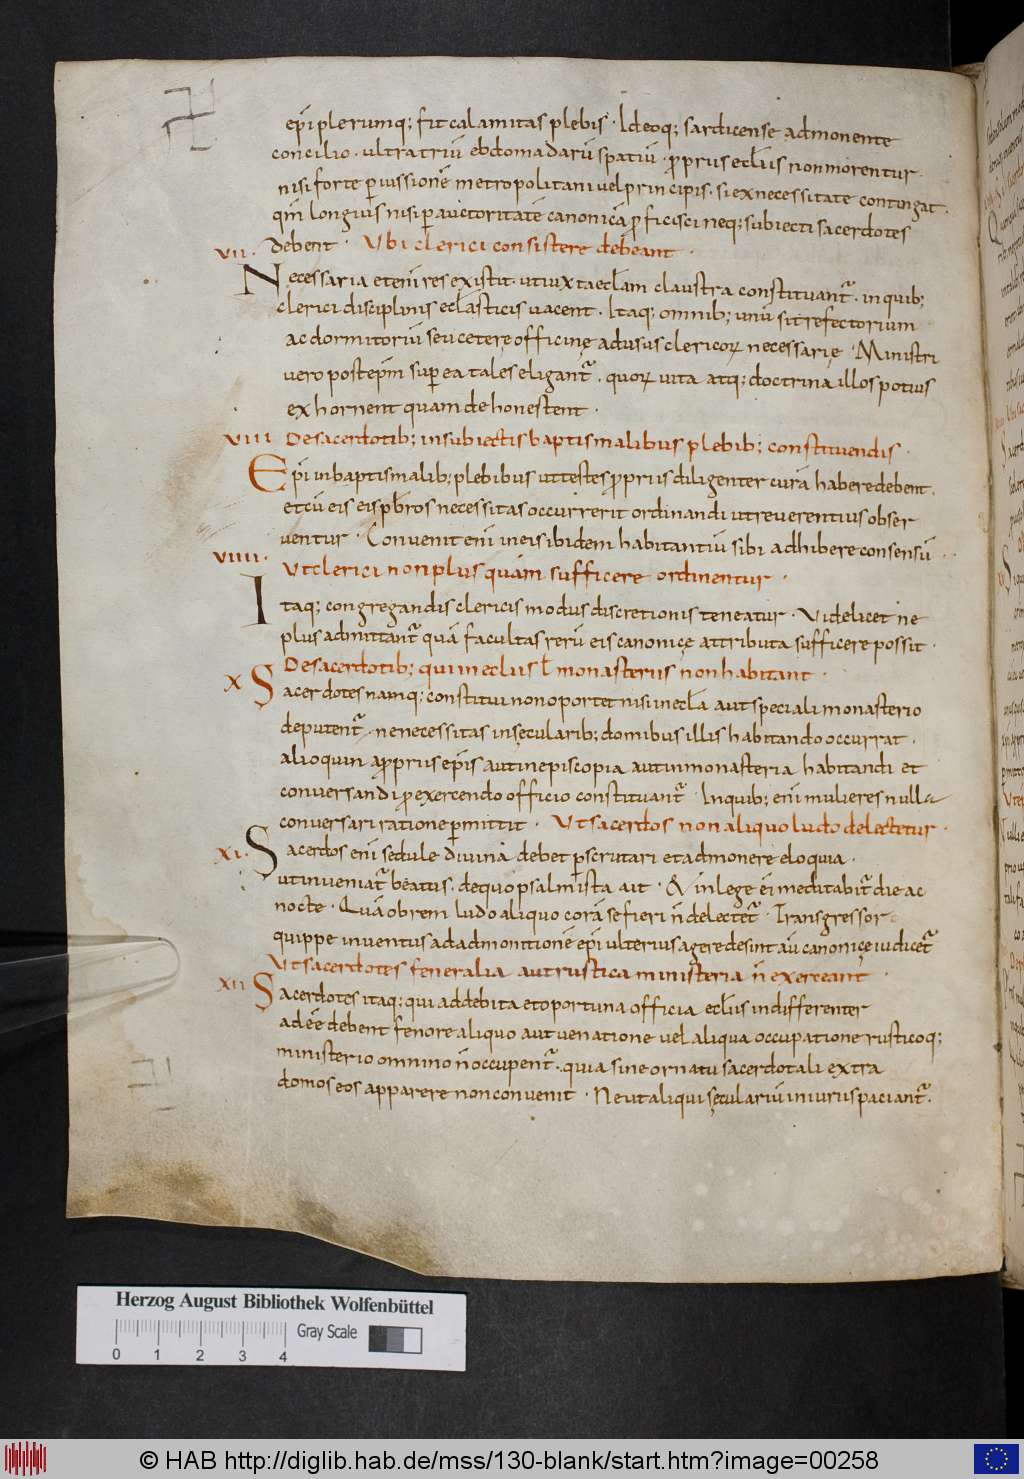 ep̄i plerumq; fit calamitas plebis · Ideoq; sardicense admonente
concilio · ultra triū ebdomadarū spatiū · propriis ecl̄iis non morentur ·
nisi forte permissionē metropolitani vel principis · si ex necessitate contingat ·
qm̄ longius nisi per auctoritatē canonicā proficisci neq; subiecti sacerdotes
debent · Ubi clerici consistere debeant ·
VII ·
Necessaria etenī res existit · ut iuxta eccl̄am claustra constituant̄ · in quib;
clerici disciplinis ecl̄asticis vacent · Itaq; omnib; unū sit refectorium
ac dormitoriū seu ceterę officinę ad usus clericoꝝ necessarię · Ministri
vero post ep̄m super ea tales eligant̄ · quoꝝ vita atq; doctrina illos potius
exhornent quam dehonestent ·
VIII De sacerdotib; in subiectis baptismalibus plebib; constituendis ·
Ep̄i in baptismalib; plebibus ut testes propriis diligenter curā habere debent ·
et cū eis eis pb̄ros necessitas occurrerit ordinandi ut reverentius obser
ventur · Convenit enī in eis ibidem habitantiū sibi adhibere consensū ·
VIIII · Ut clerici non plus quam sufficere ordinentur ·
Itaq; congregandis clericis modus discretionis teneatur · Videlicet ne
plus admittant̄ quā facultas rerū eis canonicę attributa sufficere possit ·
De sacerdotib; qui in ecl̄iis ł monasteriis non habitant ·
X Sacerdotes namq; constitui non oportet nisi in ecl̄a aut speciali monasterio
deputent̄ · ne necessitas in sęcularib; domibus illis habitando occurrat ·
alioquin a propriis ep̄is aut in episcopia aut in monasteria habitandi et
conversandi pro exercendo officio constituant̄ · In quib; enī mulieres nulla
conversari ratione permittit · Ut sacerdos non aliquo ludo delectetur ·
XI · Sacerdos enī sedule divina debet perscrutari et admonere eloquia ·
ut inveniat̄ beatus · de quo psalmista ait · & in lege eī meditabit̄ die ac
nocte · Quā obrem ludo aliquo corā se fieri n̄ delectet̄ · Transgressor
quippe inventus ad admonitionē ep̄i ulterius agere desinat aū canonicę iudicet̄
Ut sacerdotes feneralia aut rustica ministeria n̄ exerceant ·
XII Sacerdotes itaq; qui ad debita et oportuna officia ecl̄iis indifferenter
adēē debent fenore aliquo aut venatione vel aliqua occupatione rusticoq;
ministerio omnino n̄ occupent̄ · quia sine ornatu sacerdotali extra
domos eos apparere non convenit · Ne ut aliqui sęculariū iniuriis paciant̄ ·
Herzog August Bibliothek Wolfenbüttel
Gray Scale
0 1 2 3 4
© HAB http://diglib.hab.de/mss/130-blank/start.htm?image=00258